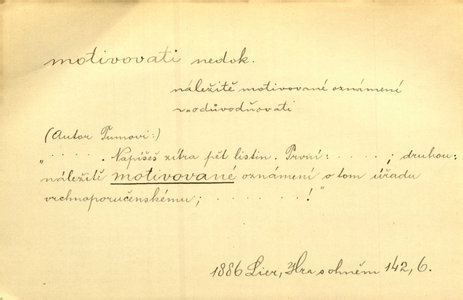 motivovati nedok.
náležitě motivované oznámení
= odůvodňovati
(Autor Tumovi:)
„ . . . . . . Napíšeš zítra pět listin. První: . . . . ; druhou:
náležitě motivované oznámení o tom úřadu
vrchnoporučenskému; . . . . . . . !"
1886 Lier, Hra s ohněm 142, 6.